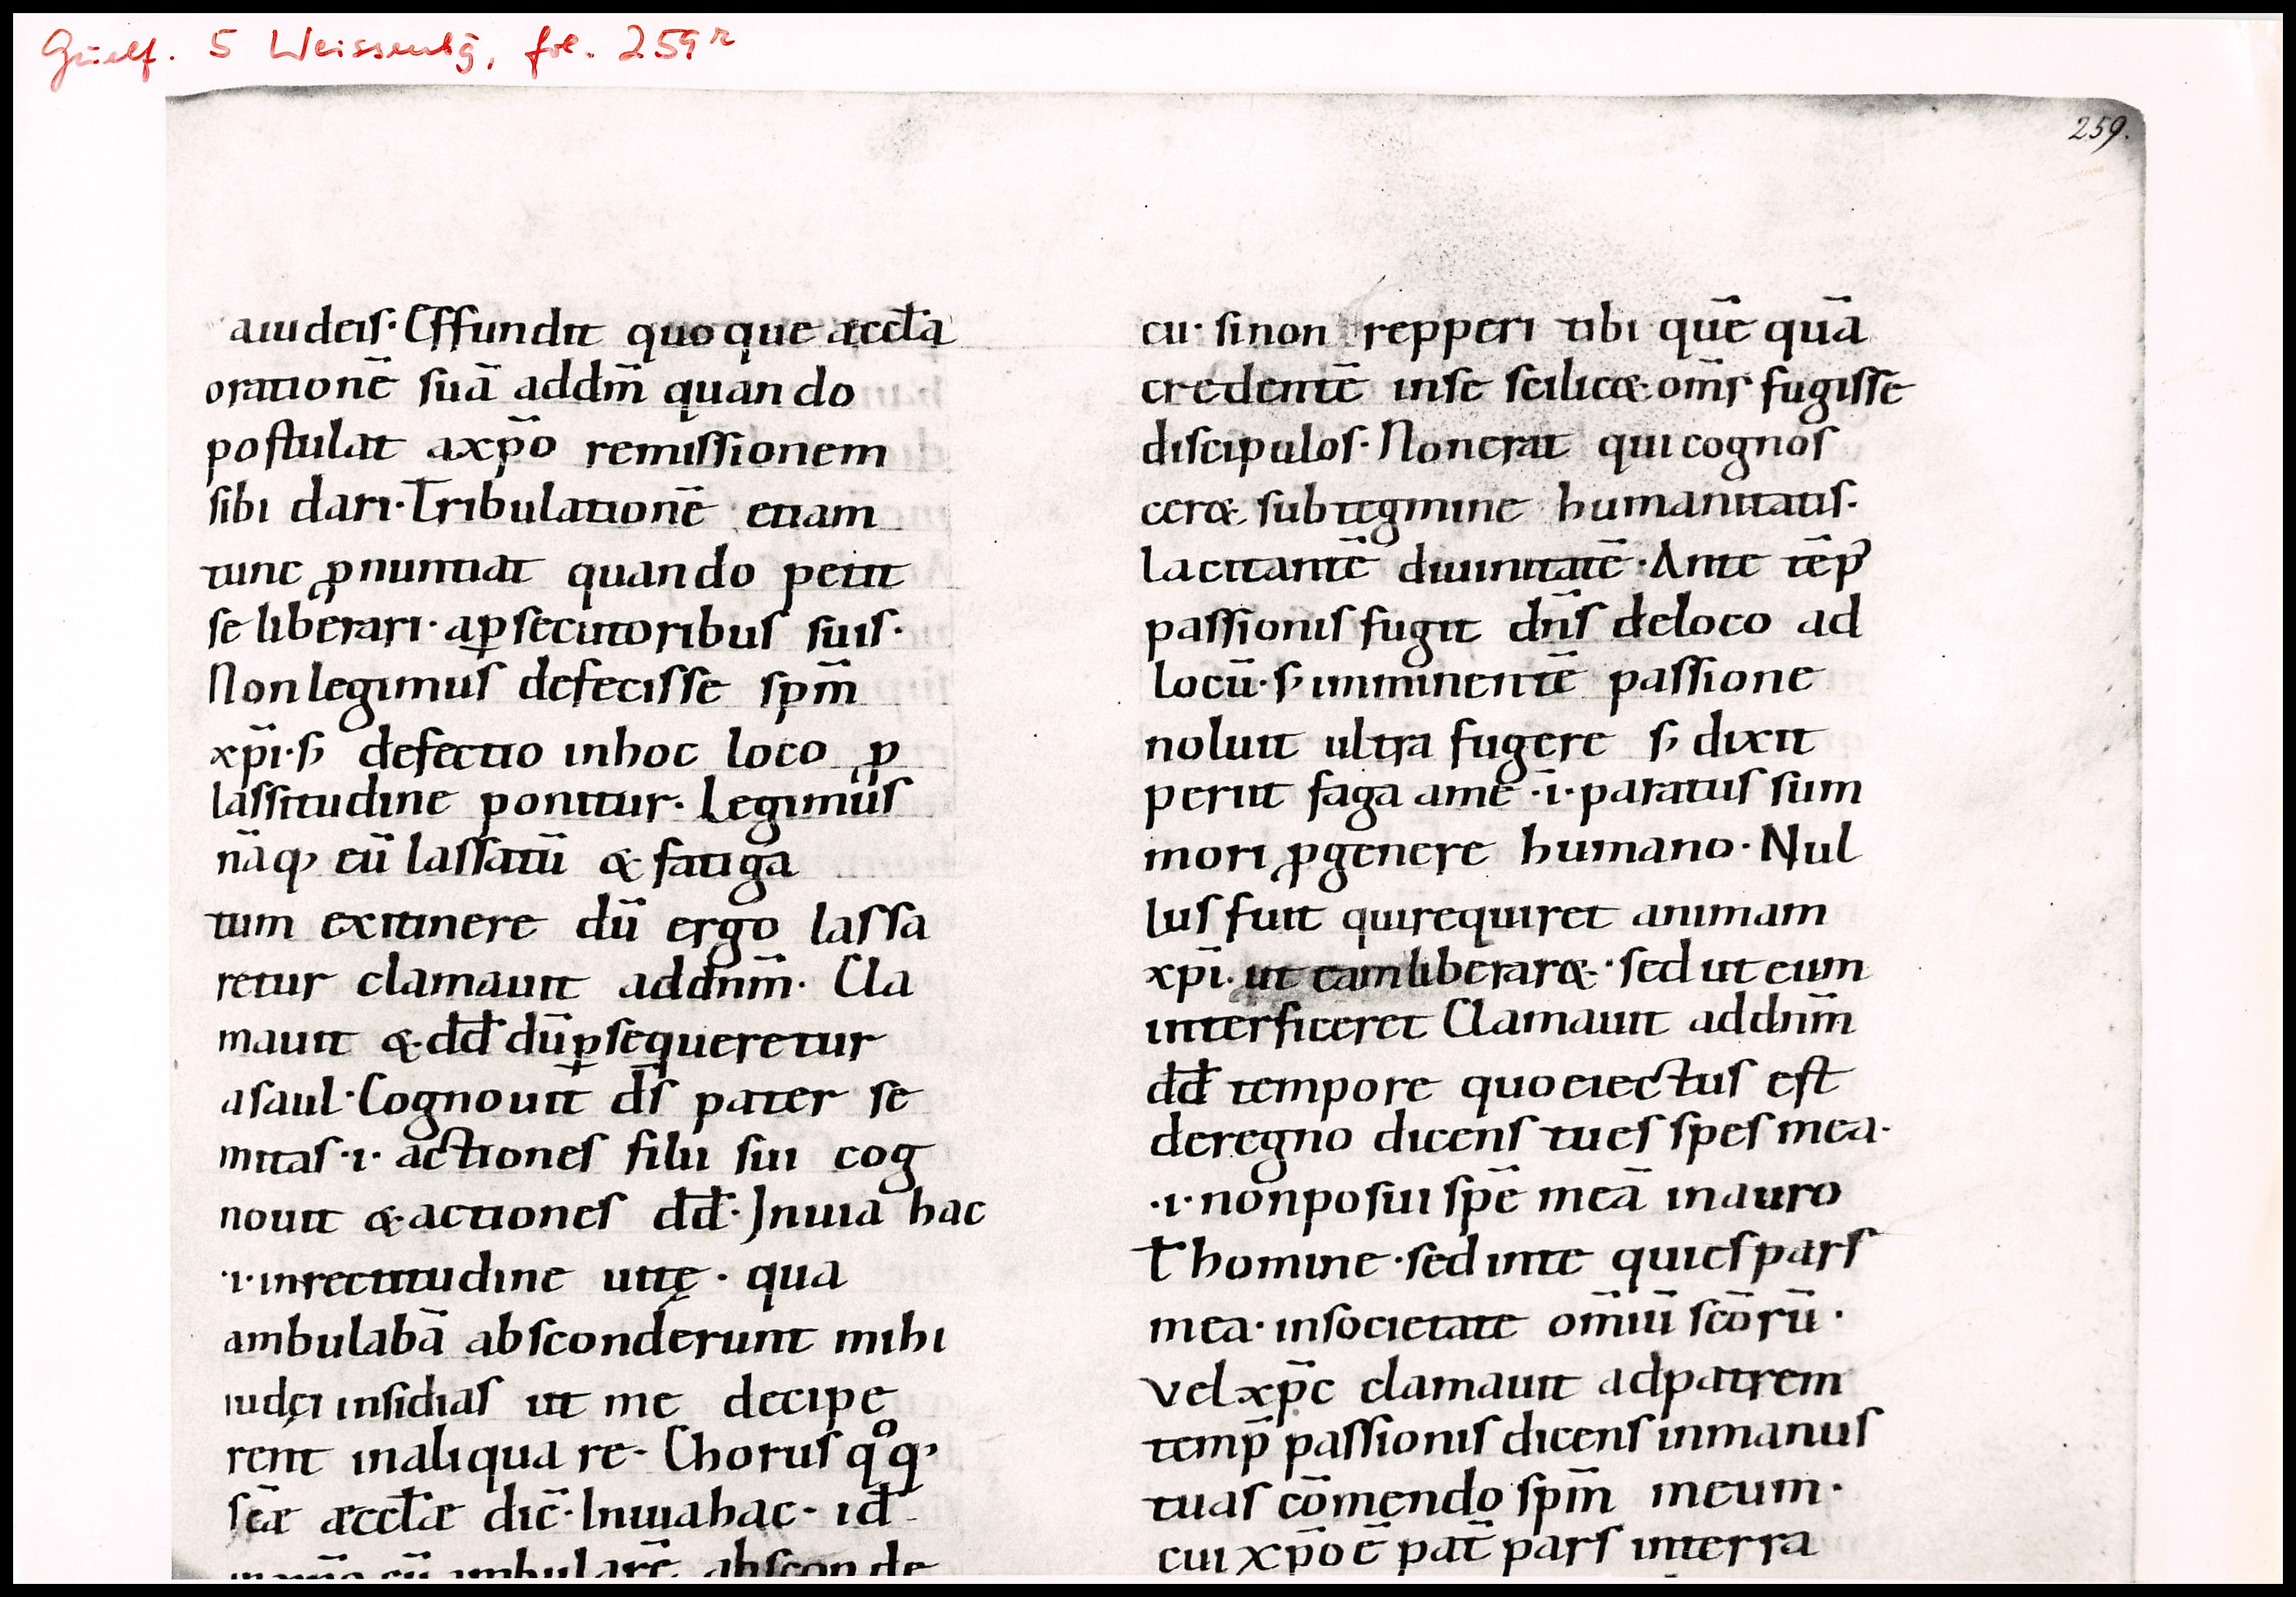 Guelf. 5 Weissenbg, fol. 259r
259.
aiudeis· Effundit quoque æccl̄a
orationē suā addm̄ quando
postulat axp̄o remissionem
sibi dari· Tribulationē etiam
tunc ꝓnuntiat quando petit
se liberari· aꝑsecutoribus suis·
Nonlegimus defecisse sp̄m
xp̄i· sꝫ defectio inhoc loco ꝓ
lassitudine ponitur· Legimus
nāqꝫ eū lassatū & fatiga
tum exitinere dū ergo lassa
retur clamauit addnm̄· Cla
mauit & dd̄ dūꝑsequeretur
asaul· Cognouit ds̄ pater se
mitas ·i· actiones filii sui cog
nouit & actiones dd̄· Inuia hac
·i· inrectitudine uitę· qua
ambulabā absconderunt mihi
iudęi insidias ut me decipe
rent inaliqua re· Chorus qͦqꝫ
sc̄æ æccl̄æ dic̄· Inuiahac· id
cū ambularē absconde
eu· sinon repperi tibi quē quā
credentē inse scilic& om̄s fugisse
discipulos· Nonerat qui cognos
cer& subtegmine humanitatis·
lacitantē diuinitatē· Ante tēp̄
passionis fugit dn̄s deloco ad
locū· sꝫ imminentē passione
noluit ultra fugere sꝫ dixit
periit faga ame ·i· paratus sum
mori ꝓgenere humano· Nul
lus fuit quirequiret animam
xp̄i· ut eamliberar& · sed ut eum
interficeret Clamauit addnm̄
dd̄ tempore quoeiectus est
deregno dicens tu es spes mea·
·i· nonposui spē meā inauro
ł homine · sed inte quies pars
mea· insocietate om̄iū sc̄orū·
vel xp̄c clamauit adpatrem
temp̄ passionis dicens inmanus
tuas cōmendo sp̄m meum·
cui xp̄o ē pat̄ pars interra